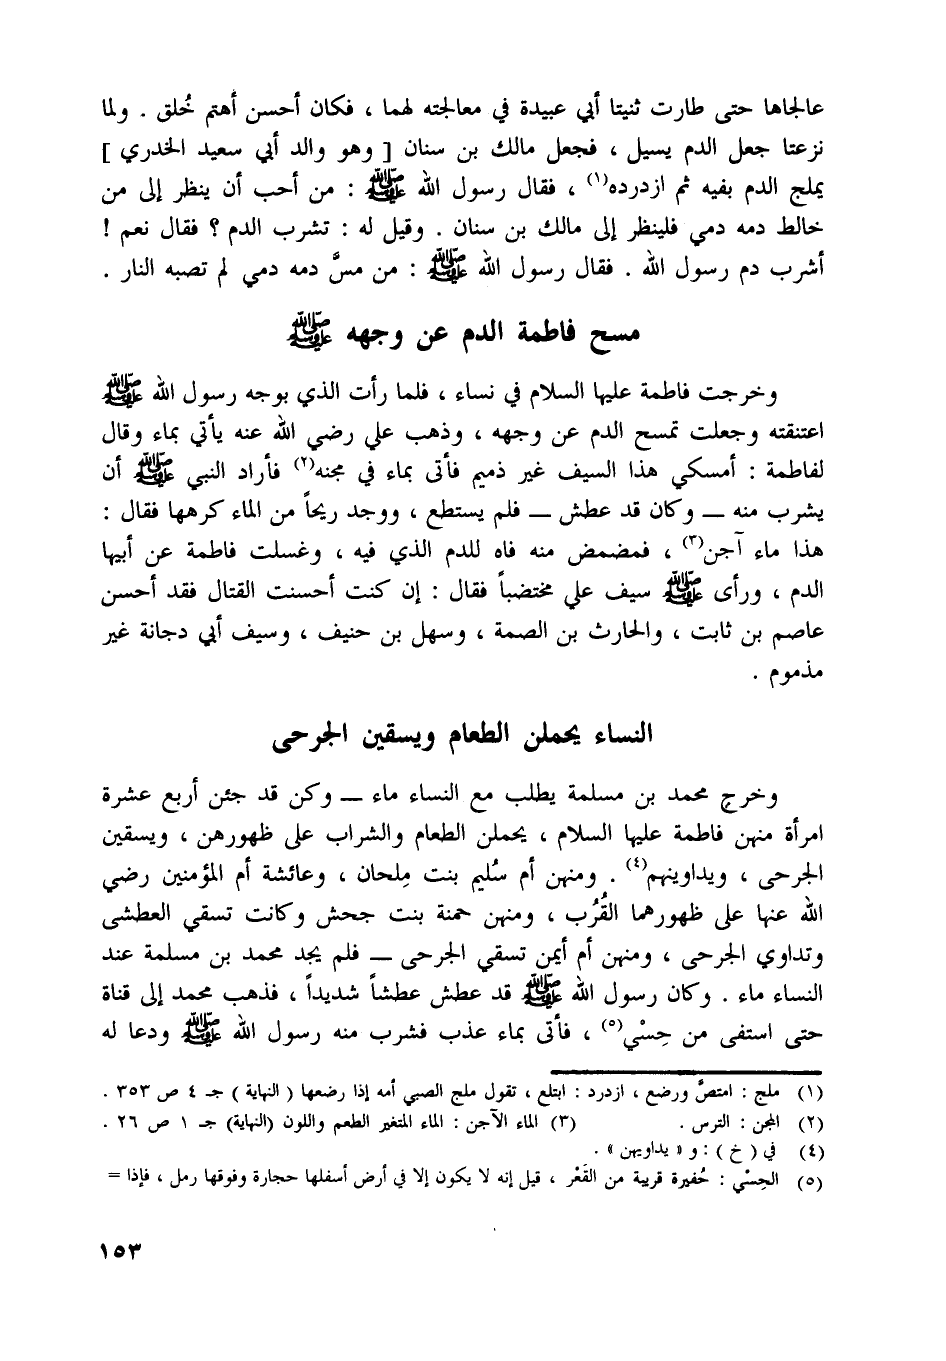 عالجاها حتى طارت ثنيتا أبي عبيدة في معالجته لهما ، فكان أحسن أهتم خُلق . ولما
نزعتا جعل الدم يسيل ، فجعل مالك بن سنان [ وهو والد أبي سعيد الخدري ]
يملج الدم بفيه ثم ازدرده(١) ، فقال رسول الله ﷺ : من أحب أن ينظر إلى من
خالط دمه دمي فلينظر إلى مالك بن سنان . وقيل له : تشرب الدم ؟ فقال نعم !
أشرب دم رسول الله . فقال رسول الله ﷺ : من مسَّ دمه دمي لم تصبه النار .
مسح فاطمة الدم عن وجهه ﷺ
وخرجت فاطمة عليها السلام في نساء ، فلما رأت الذي بوجه رسول الله ﷺ
اعتنقته وجعلت تمسح الدم عن وجهه ، وذهب علي رضي الله عنه يأتي بماء وقال
لفاطمة : أمسكي هذا السيف غير ذميم فأتى بماء في مجنه(٢) فأراد النبي ﷺ أن
يشرب منه — وكان قد عطش — فلم يستطع ، ووجد ريحاً من الماء كرهها فقال :
هذا ماء آجن(٣) ، فمضمض منه فاه للدم الذي فيه ، وغسلت فاطمة عن أبيها
الدم ، ورأى ﷺ سيف علي مختضباً فقال : إن كنت أحسنت القتال فقد أحسن
عاصم بن ثابت ، والحارث بن الصمة ، وسهل بن حنيف ، وسيف أبي دجانة غير
مذموم .
النساء يحملن الطعام ويسقين الجرحى
وخرج محمد بن مسلمة يطلب مع النساء ماء — وكن قد جئن أربع عشرة
امرأة منهن فاطمة عليها السلام ، يحملن الطعام والشراب على ظهورهن ، ويسقين
الجرحى ، ويداوينهم(٤) . ومنهن أم سُليم بنت مِلحان ، وعائشة أم المؤمنين رضي
الله عنها على ظهورهما القُرُب ، ومنهن حمنة بنت جحش وكانت تسقي العطشى
وتداوي الجرحى ، ومنهن أم أيمن تسقي الجرحى — فلم يجد محمد بن مسلمة عند
النساء ماء . وكان رسول الله ﷺ قد عطش عطشاً شديداً ، فذهب محمد إلى قناة
حتى استفى من حِسْي(٥) ، فأتى بماء عذب فشرب منه رسول الله ﷺ ودعا له
(١) ملج : امتصَّ ورضع ، ازدرد : ابتلع ، تقول ملج الصبي أمه إذا رضعها ( النهاية ) جـ ٤ ص ٣٥٣ .
(٢) المجن : الترس . (٣) الماء الآجن : الماء المتغير الطعم واللون (النهاية) جـ ١ ص ٢٦ .
(٤) في ( خ ) : و « يداويهن » .
(٥) الحِسْي : حُفيرة قريبة من القَعْر ، قيل إنه لا يكون إلا في أرض أسفلها حجارة وفوقها رمل ، فإذا =
١٥٣